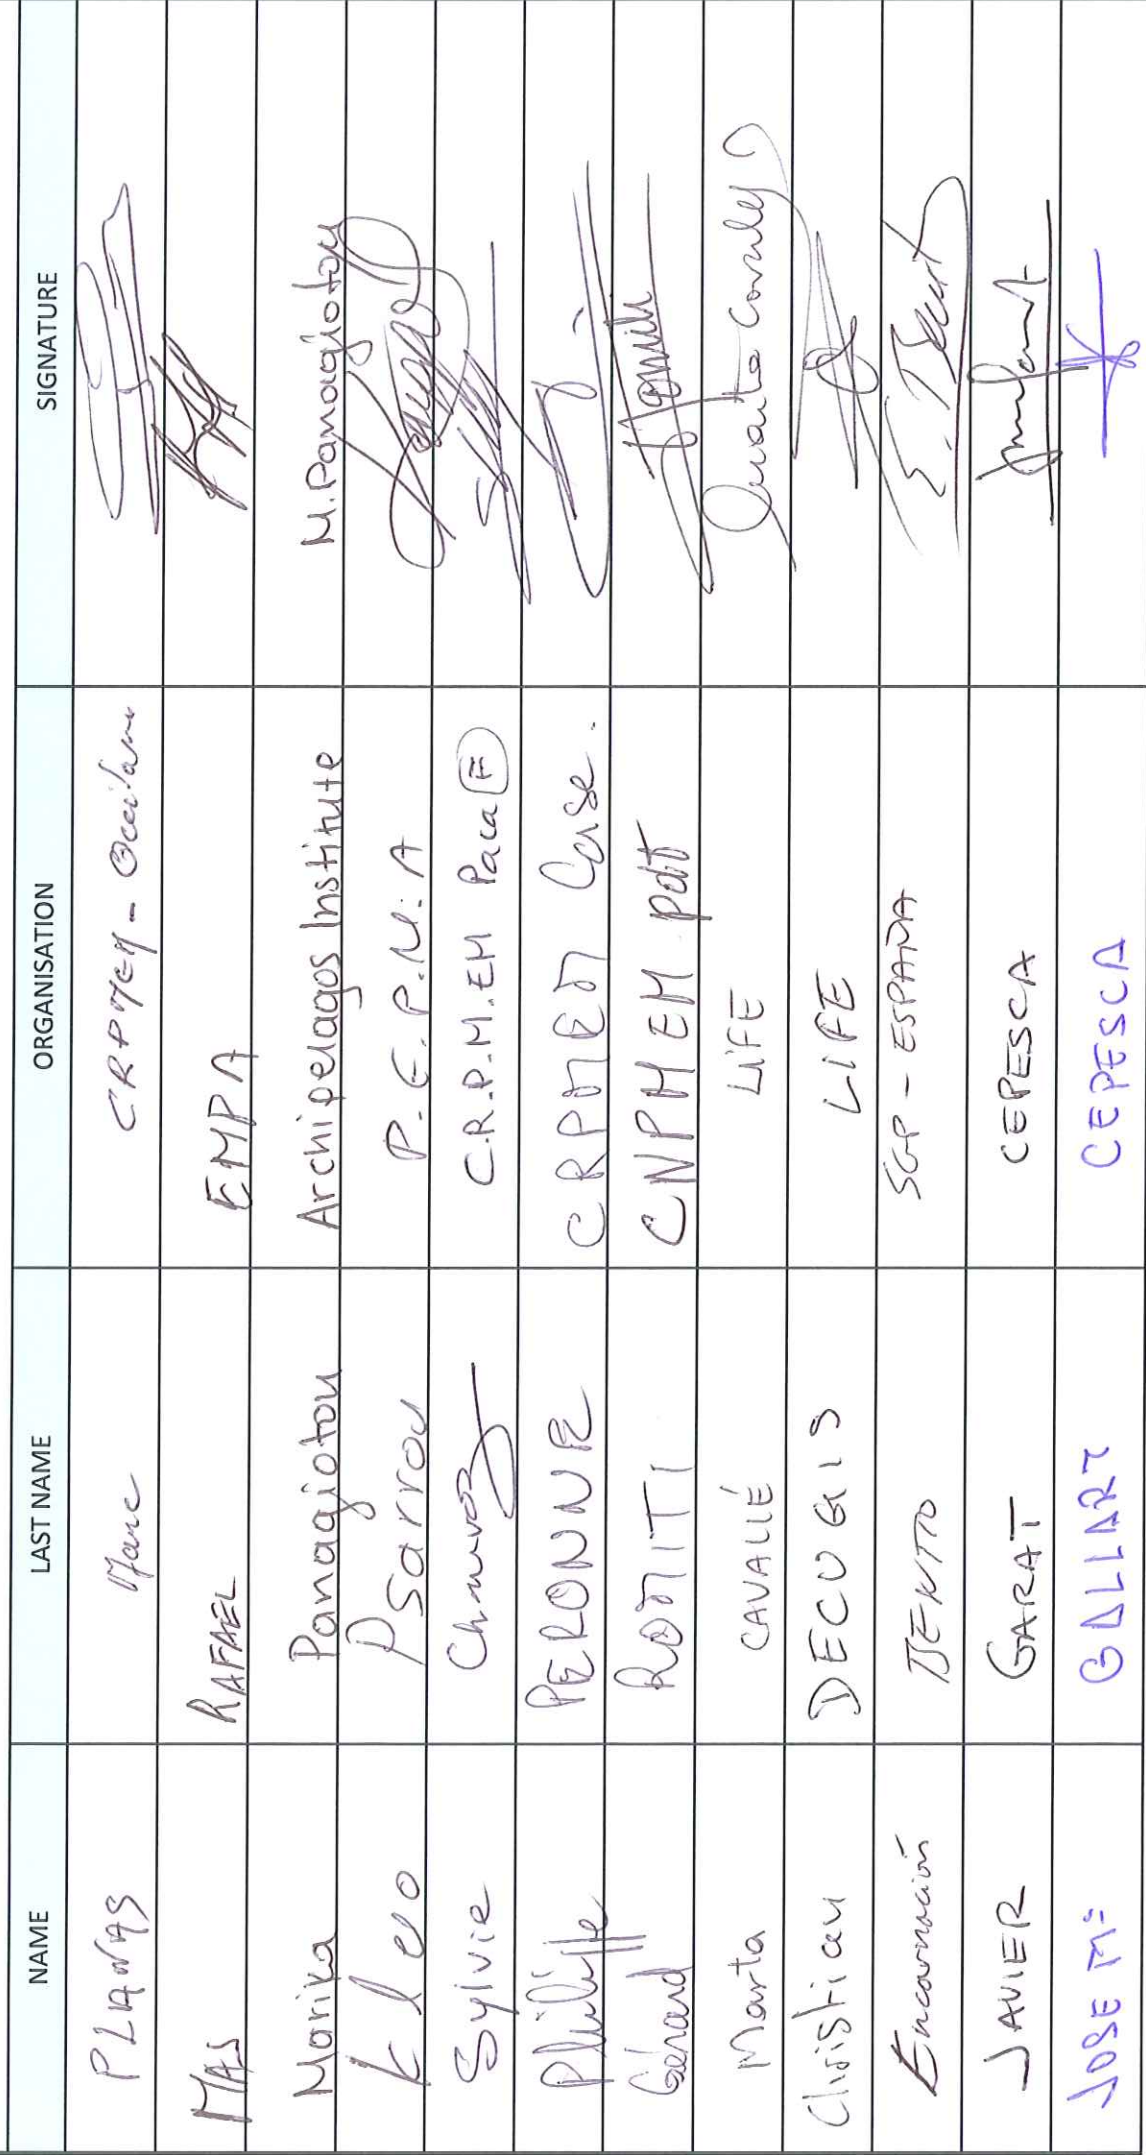 NAME LAST NAME ORGANISATION SIGNATURE
PLANAS Marc CRPMEM - Occitanie
MAS RAFAEL EMPA
Marika Panagiotou Archipelagos Institute M.Panagiotou
Kleo Psarrou P.E.P.M.A
Sylvie Chauvoz C.R.P.M.EM Paca F
Philippe PERONNE CRPMEM Corse.
Gérard ROMITI CNPMEM pdt
Marta CAVALLÉ LIFE
Christian DECUGIS LIFE
Encarnación BENITO SGP - ESPAÑA E. Benito
JAVIER GARAT CEPESCA
JOSE Mª GALLART CEPESCA